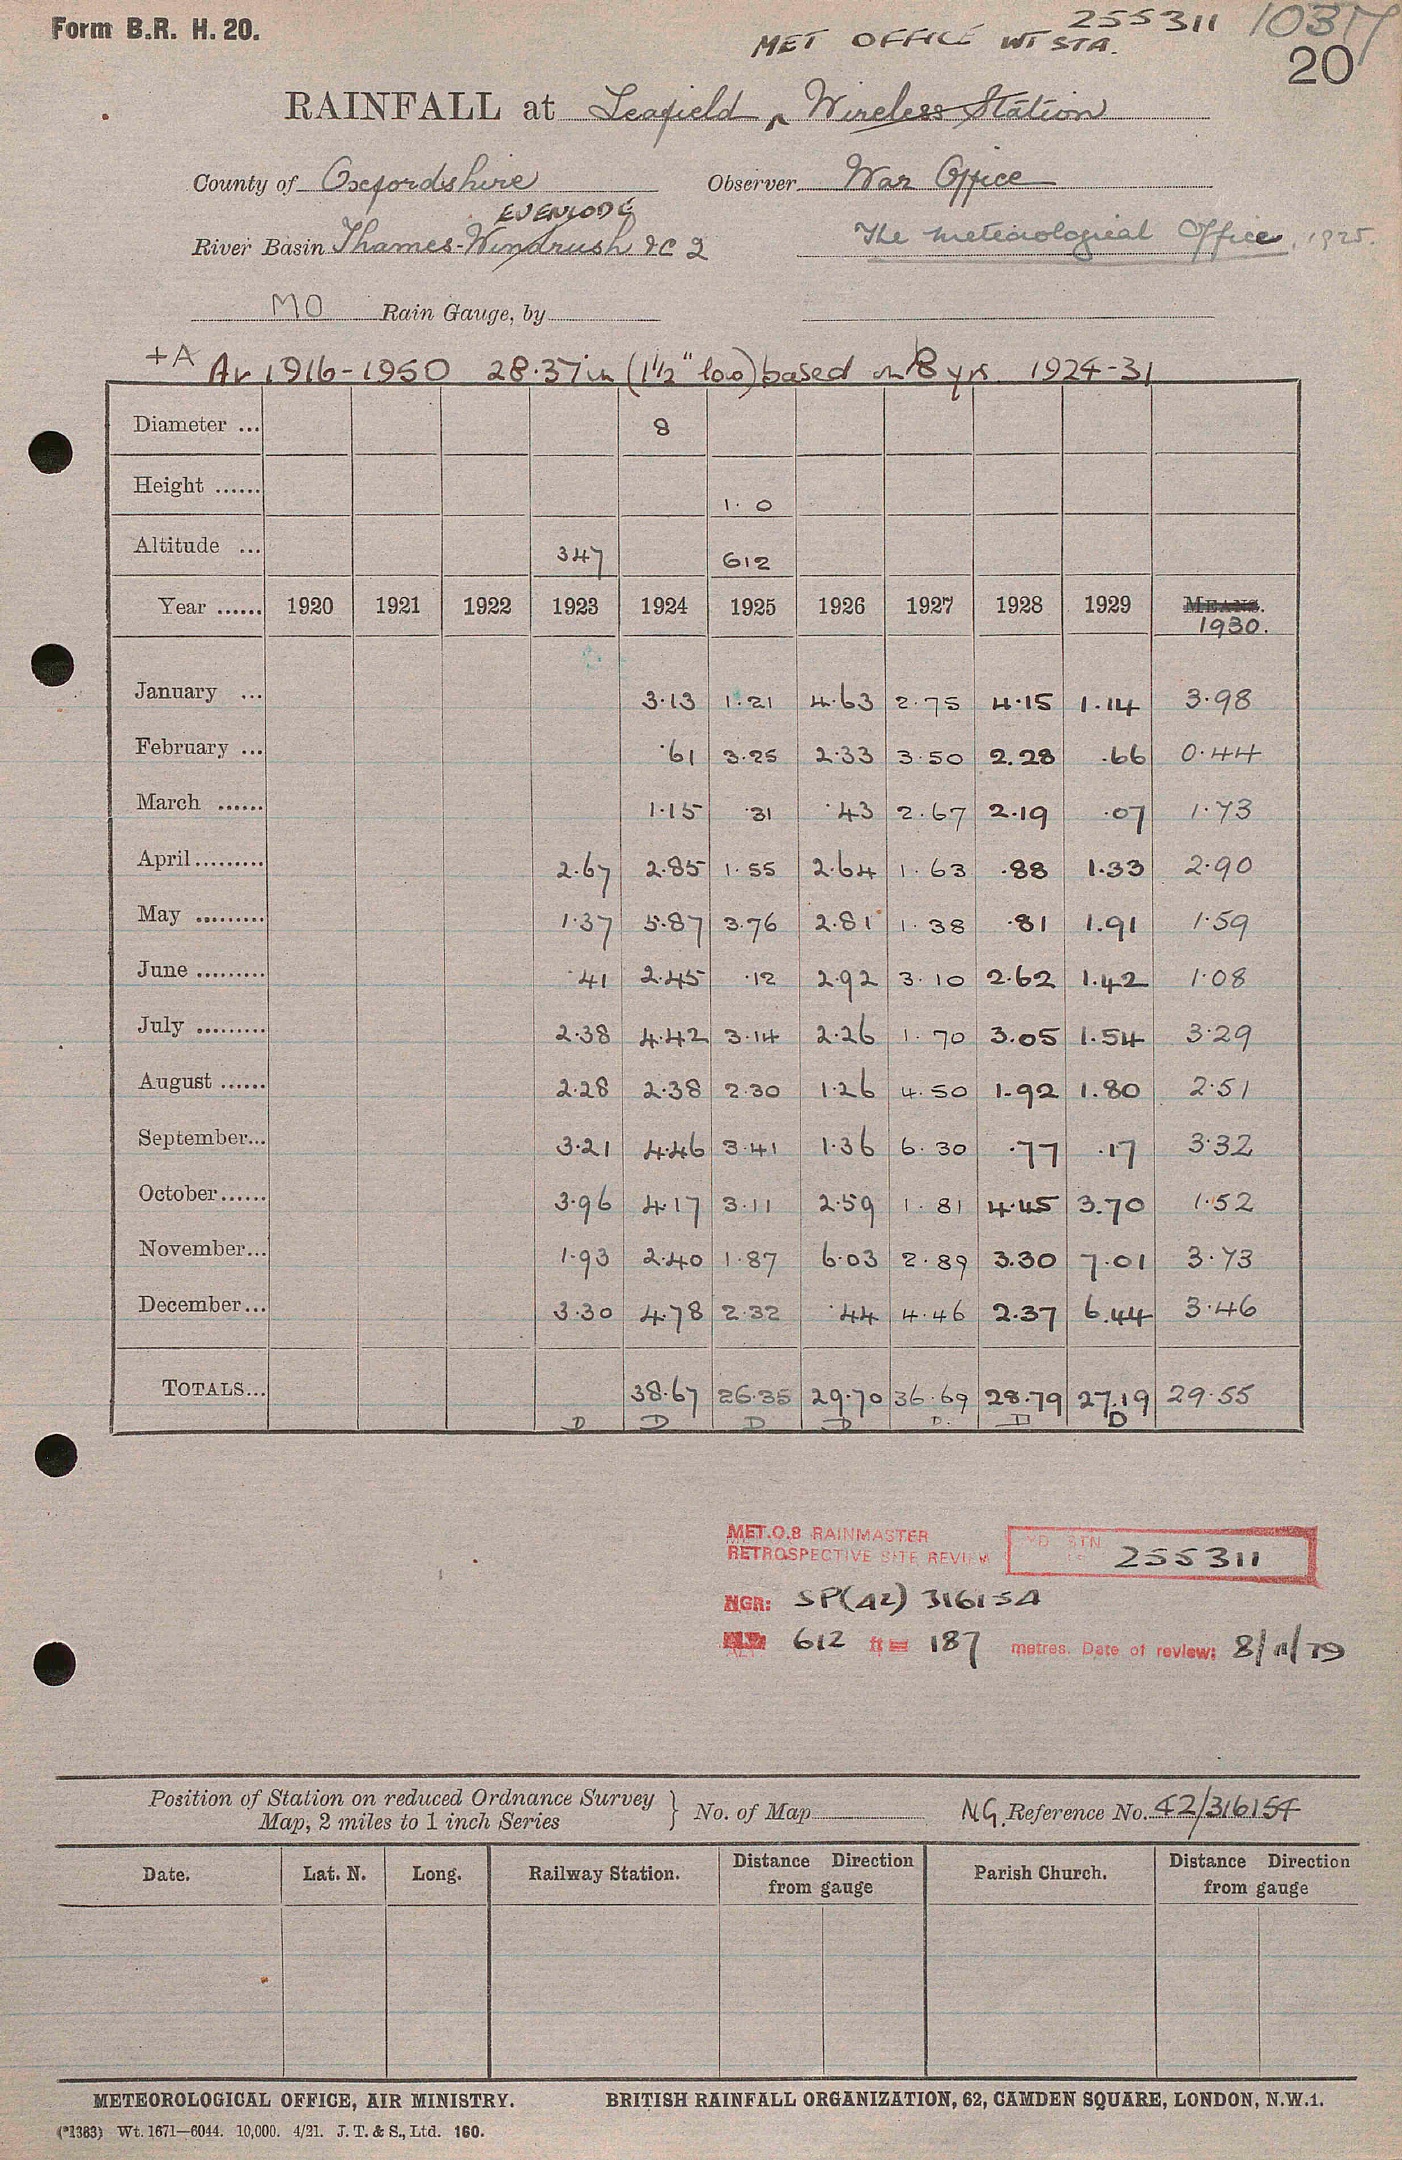 Form B.R. H. 20.
255311 1037
MET OFFICE WT STA.
20
RAINFALL at Leafield Wireless Station
County of Oxfordshire Observer War Office
EVENLODE
River Basin Thames-Windrush &c 2 The Meteorological Office, 1925.
MO Rain Gauge, by
+A Av 1916-1950 28.37 in (1½" low) based on 8 yrs. 1924-31
Diameter ... 8
Height ...... 1.0
Altitude ... 347 612
Year ...... 1920 1921 1922 1923 1924 1925 1926 1927 1928 1929 MEANS.
1930.
January ... 3.13 1.21 4.63 2.75 4.15 1.14 3.98
February ... .61 3.25 2.33 3.50 2.28 .66 0.44
March ...... 1.15 .31 .43 2.67 2.19 .07 1.73
April......... 2.67 2.85 1.55 2.64 1.63 .88 1.33 2.90
May ......... 1.37 5.87 3.76 2.81 1.38 .81 1.91 1.59
June ......... .41 2.45 .12 2.92 3.10 2.62 1.42 1.08
July ......... 2.38 4.42 3.14 2.26 1.70 3.05 1.54 3.29
August ...... 2.28 2.38 2.30 1.26 4.50 1.92 1.80 2.51
September... 3.21 4.46 3.41 1.36 6.30 .77 .17 3.32
October...... 3.96 4.17 3.11 2.59 1.81 4.45 3.70 1.52
November... 1.93 2.40 1.87 6.03 2.89 3.30 7.01 3.73
December... 3.30 4.78 2.32 .44 4.46 2.37 6.44 3.46
TOTALS... 38.67 26.35 29.70 36.69 28.79 27.19 29.55
D D D D D. D D
MET.O.8 RAINMASTER
RETROSPECTIVE SITE REVIEW STN 255311
NGR: SP(42) 316154
ALT 612 ft = 187 metres. Date of review: 8/11/79
Position of Station on reduced Ordnance Survey
Map, 2 miles to 1 inch Series } No. of Map N.G. Reference No. 42/316154
Date. Lat. N. Long. Railway Station. Distance Direction from gauge Parish Church. Distance Direction from gauge
METEOROLOGICAL OFFICE, AIR MINISTRY. BRITISH RAINFALL ORGANIZATION, 62, CAMDEN SQUARE, LONDON, N.W.1.
(*1383) Wt. 1671—6044. 10,000. 4/21. J. T. & S., Ltd. 160.